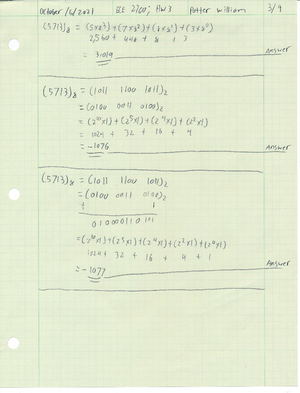 October /6/2021 ECE 2700; HW 3 Potter William 3/9
(5713)₈ = (5×8³)+(7×8²)+(1×8¹)+(3×8⁰)
2,560 + 448 + 8 + 3
= 3019
Answer
(5713)₈ = (1011 1100 1011)₂
= (0100 0011 0100)₂
= (2¹⁰×1)+(2⁵×1)+(2⁴×1)+(2²×1)
= 1024 + 32 + 16 + 4
= -1076
Answer
(5713)₈ = (1011 1100 1011)₂
= (0100 0011 0100)₂
+ 1
010000110101
= (2¹⁰×1)+(2⁵×1)+(2⁴×1)+(2²×1)+(2⁰×1)
1024 + 32 + 16 + 4 + 1
= -1077
Answer